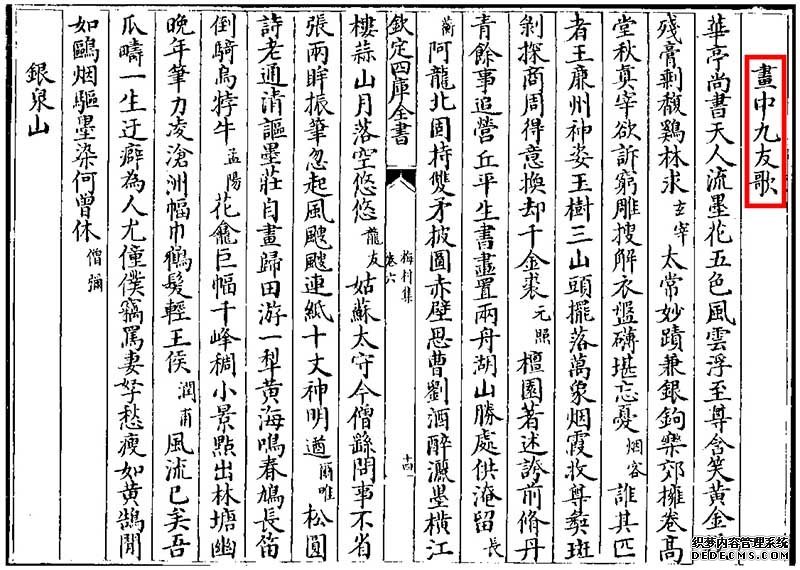 畫中九友歌
華亭尚書天人流墨花五色風雲浮至尊含笑黃金
殘膏剩馥鷄林求玄宰太常妙蹟兼銀鉤樂郊擁卷高
堂秋真宰欲訴窮雕搜解衣盤礴堪忘憂烟客誰其匹
者王廉州神姿玉樹三山頭擺落萬象烟霞收尊彝斑
剝探商周得意換却千金裘元照檀園著述誇前脩丹
青餘事追營丘平生書畫置兩舟湖山勝處供淹留長
蘅阿龍北固持雙矛披圖赤壁思曹劉酒醉灑墨橫江
欽定四庫全書
梅村集
卷六
十四
樓蒜山月落空悠悠龍友姑蘇太守今僧繇問事不省
張兩眸振筆忽起風颼颼連紙十丈神明遒爾唯松圓
詩老通清謳墨莊自畫歸田游一犁黃海鳴春鳩長笛
倒騎烏牸牛孟陽花龕巨幅千峰稠小景點出林塘幽
晚年筆力凌滄洲幅巾鶴髮輕王侯潤甫風流已矣吾
瓜疇一生迂癖為人尤僮僕竊罵妻孥愁瘦如黃鵠閒
如鷗烟驅墨染何曾休僧彌
銀泉山
织梦内容管理系统
DEDECMS.COM